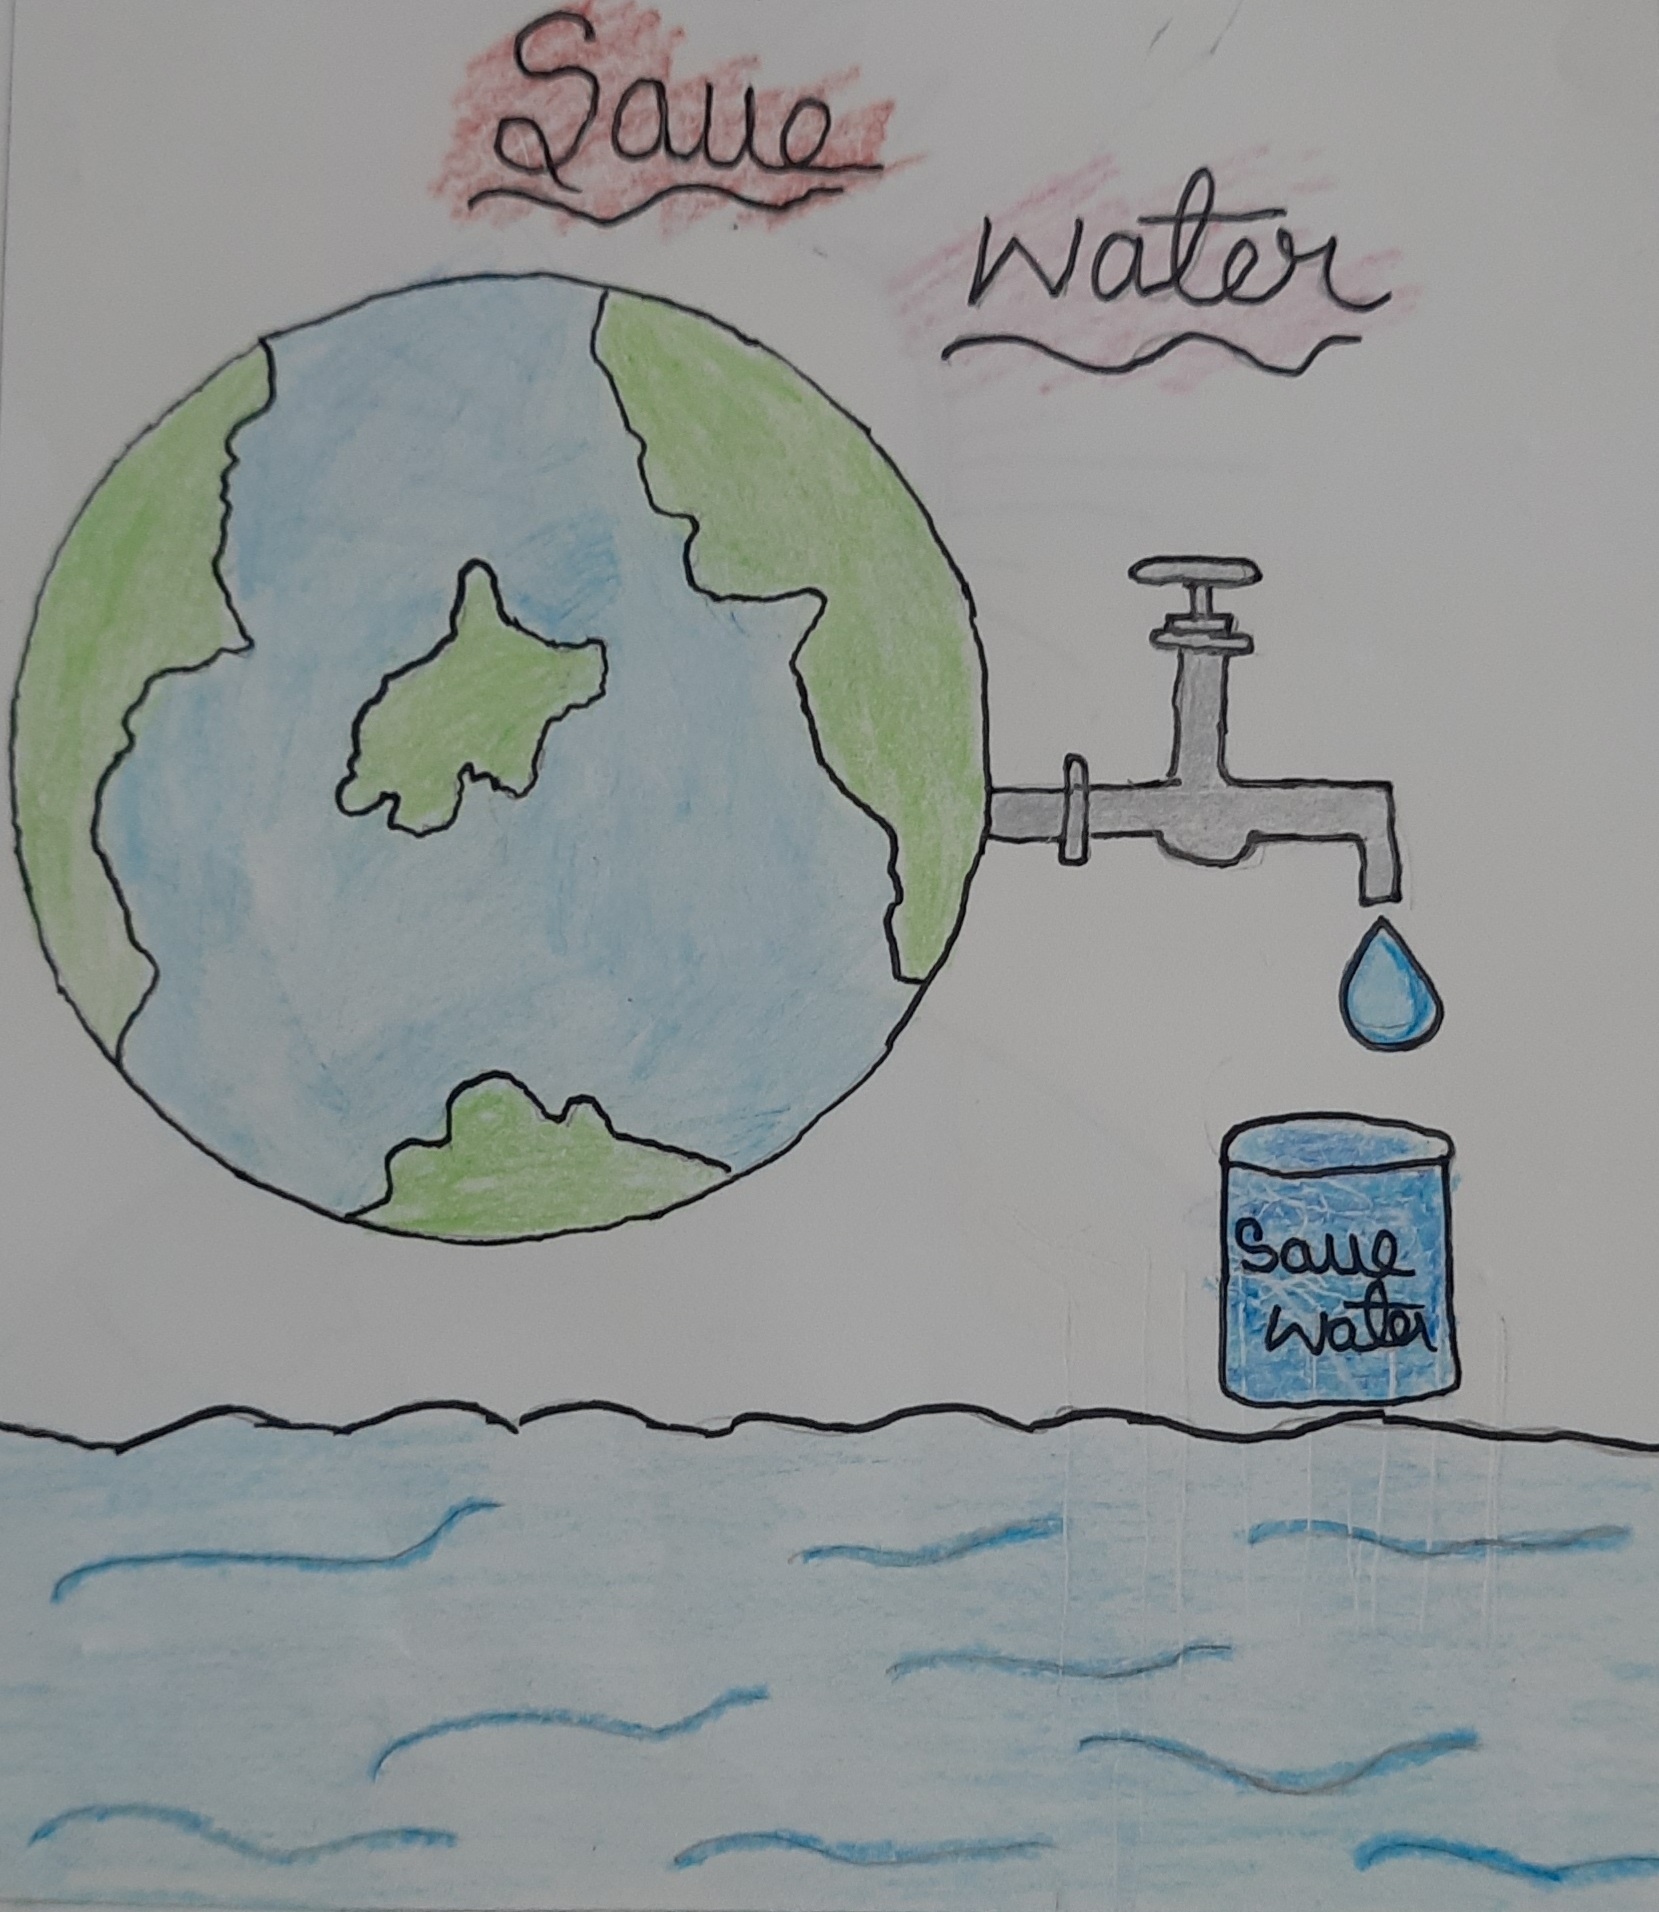 Save
Water
Save
Water